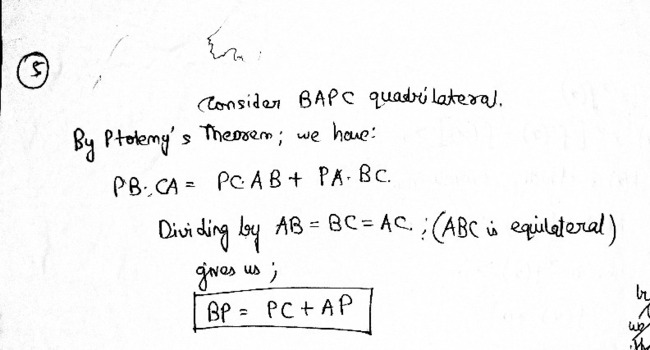 5
Consider BAPC quadrilateral.
By Ptolemy's Theorem; we have:
PB·CA = PC·AB + PA·BC
Dividing by AB = BC = AC ; (ABC is equilateral)
gives us ;
BP = PC + AP
we